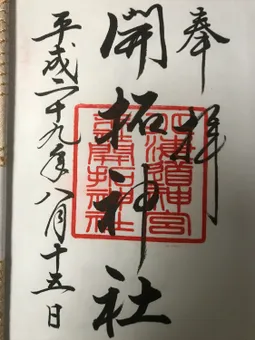 奉拝
開拓神社
平成二十九年八月十五日
北海道神宮
末社開拓神社